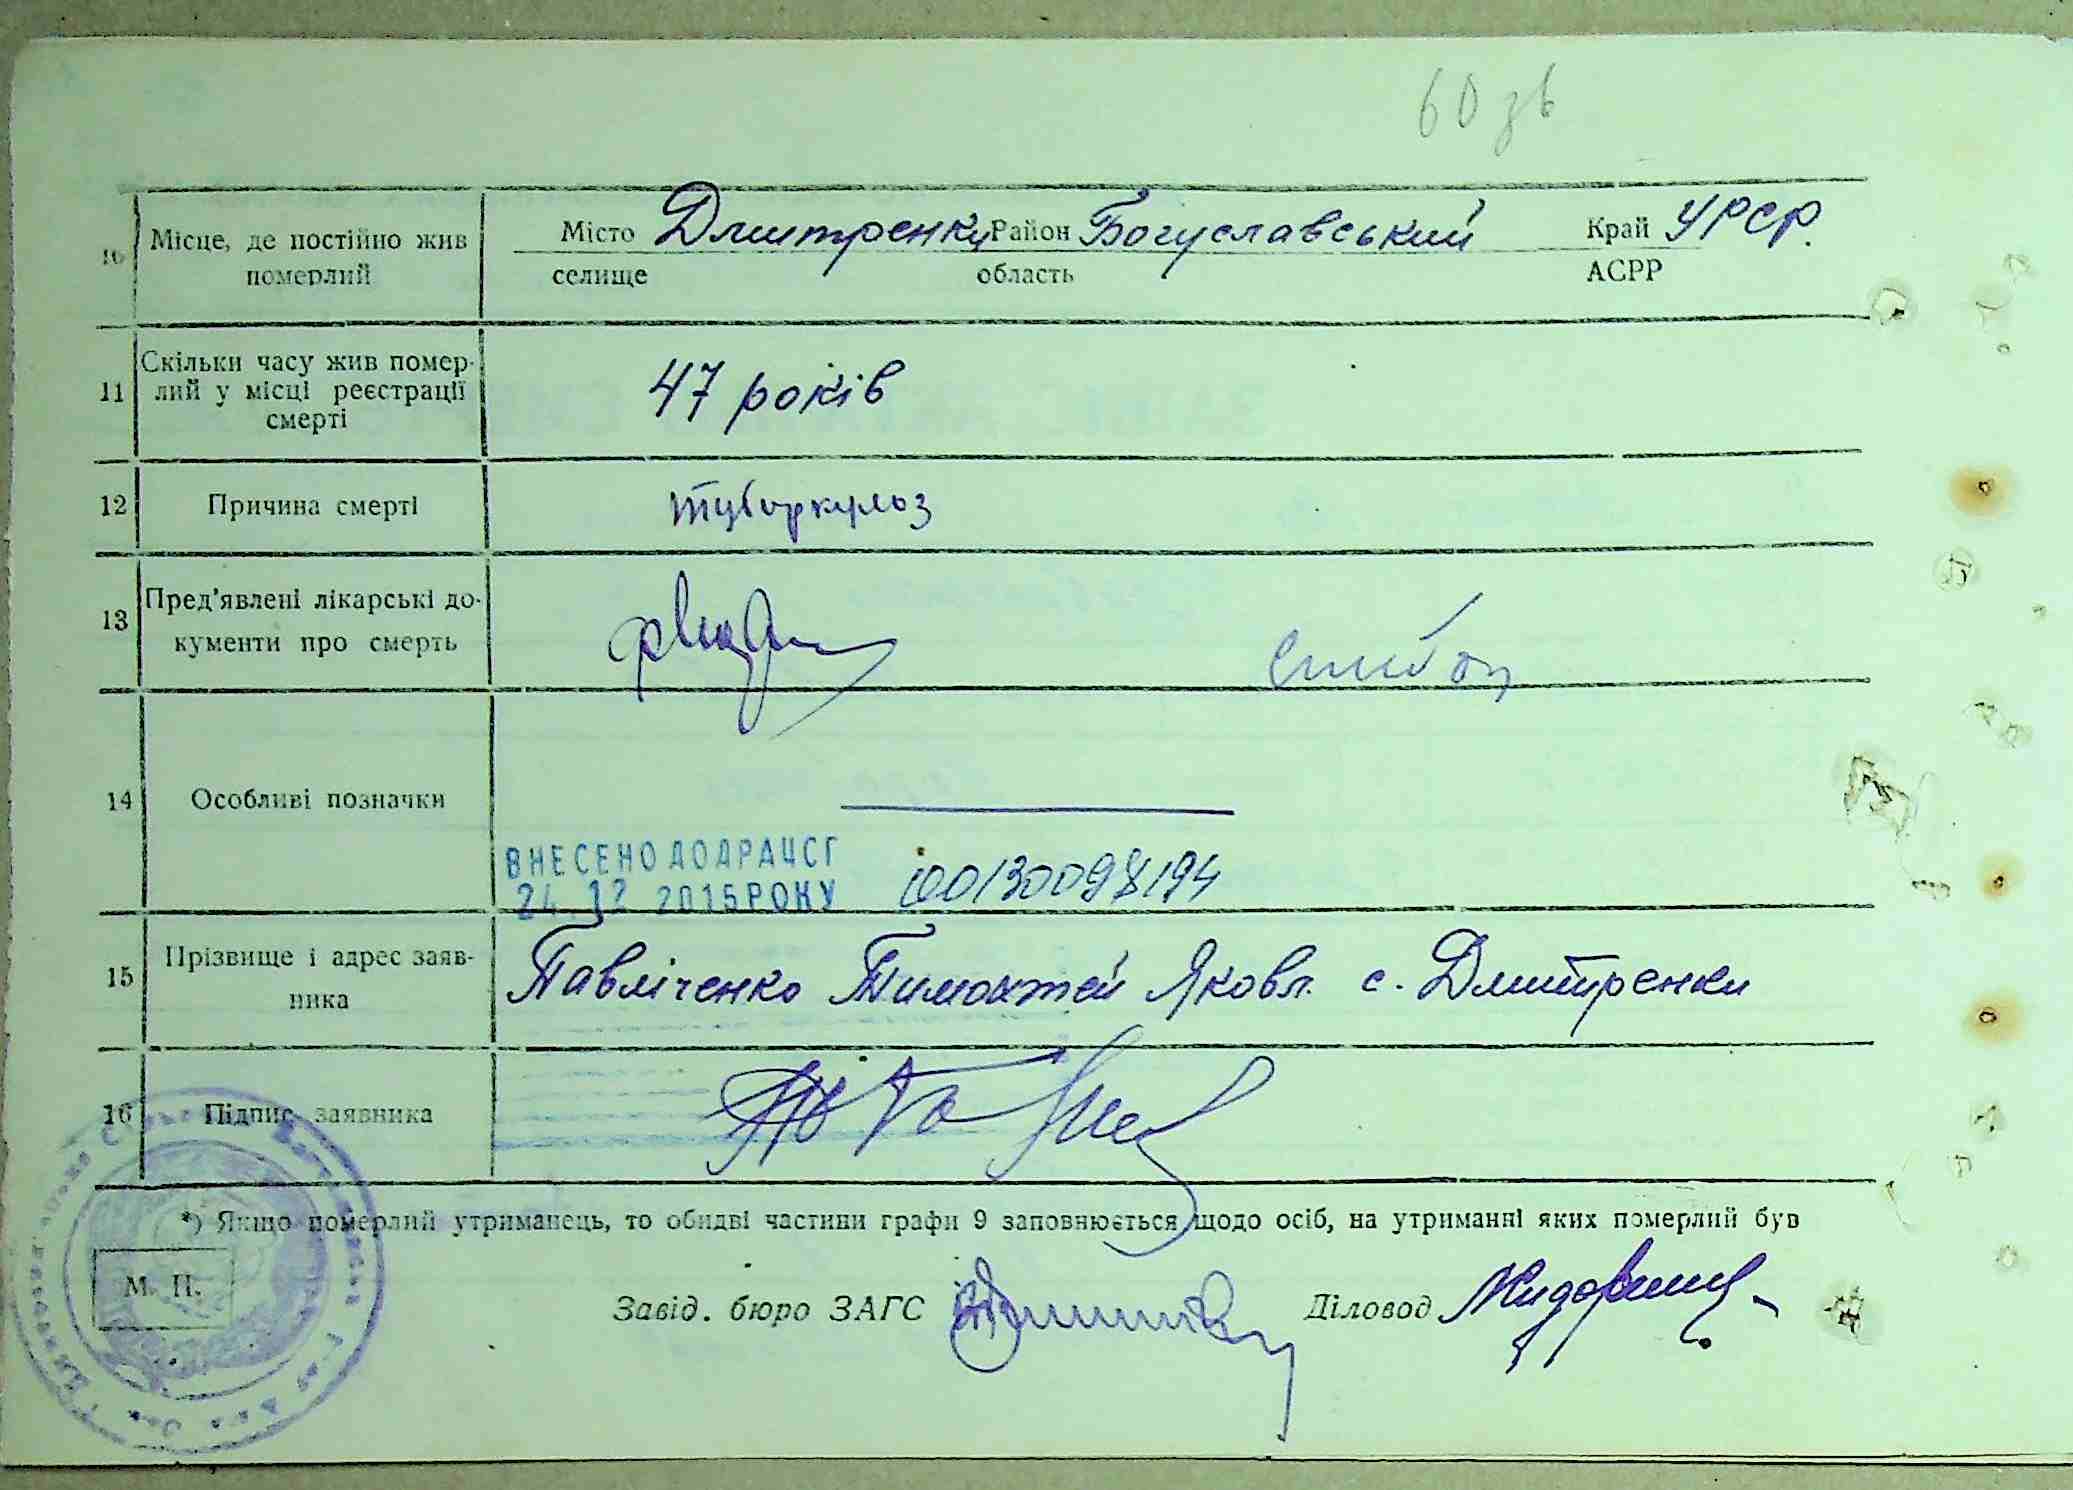 60 зв
10 Місце, де постійно жив померлий
Місто Дмитренки Район Богуславський Край УРСР.
селище область АСРР
11 Скільки часу жив помер-
лий у місці реєстрації
смерті
47 років
12 Причина смерті туберкульоз
13 Пред'явлені лікарські до-
кументи про смерть
14 Особливі позначки
ВНЕСЕНО ДО ДРАЦСГ
24 12 2015 РОКУ 00130098194
15 Прізвище і адрес заяв-
ника
Павліченко Тимохтей Яковл. с. Дмитренки
16 Підпис заявника
*) Якщо померлий утриманець, то обидві частини графи 9 заповнюється щодо осіб, на утриманні яких померлий був
М. П.
Завід. бюро ЗАГС Діловод